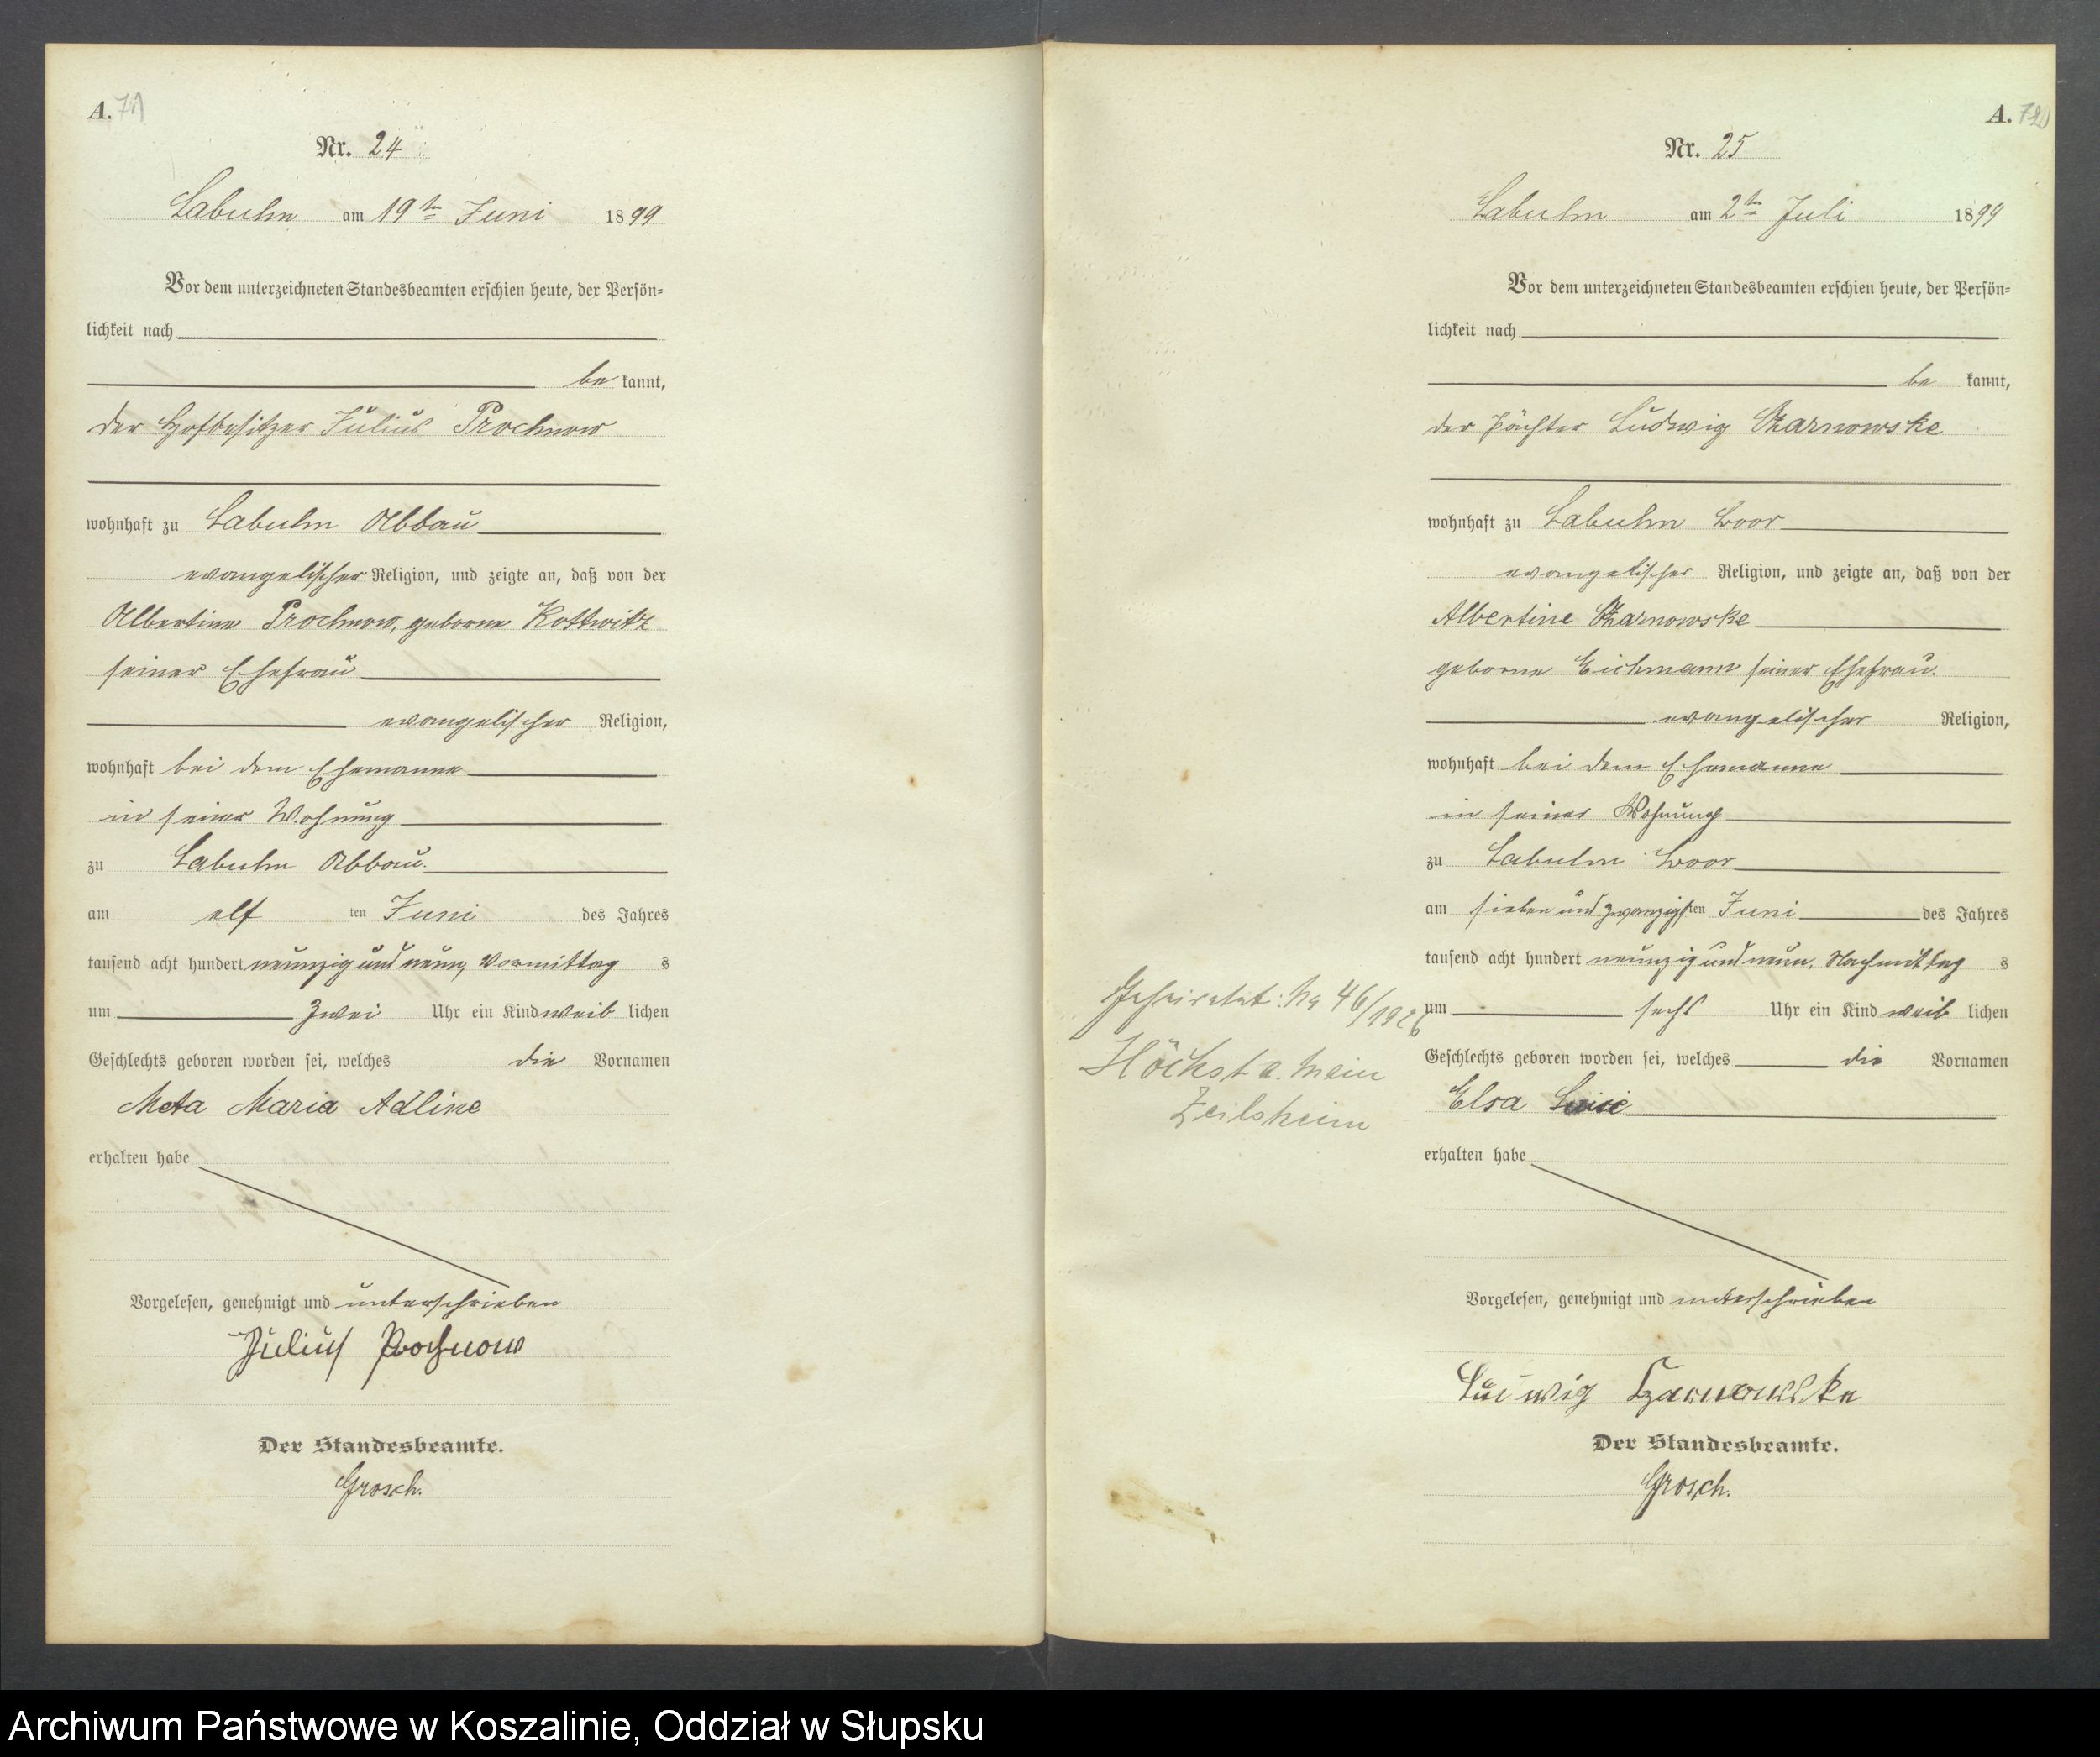 A.
Nr. 24
Labuhn am 19ten Juni 1899
Vor dem unterzeichneten Standesbeamten erschien heute, der Persön-
lichkeit nach
be kannt,
der Hofbesitzer Julius Prochnow
wohnhaft zu Labuhn Abbau
evangelischer Religion, und zeigte an, daß von der
Albertine Prochnow, geborne Kottwitz
seiner Ehefrau
evangelischer Religion,
wohnhaft bei dem Ehemanne
in seiner Wohnung
zu Labuhn Abbau.
am elf ten Juni des Jahres
tausend acht hundert neunzig und neun, Vormittag s
um zwei Uhr ein Kind weib lichen
Geschlechts geboren worden sei, welches die Vornamen
Meta Maria Adline
erhalten habe
Vorgelesen, genehmigt und unterschrieben
Julius Prochnow
Der Standesbeamte.
Grosch.
A.
Nr. 25
Labuhn am 2ten Juli 1899
Vor dem unterzeichneten Standesbeamten erschien heute, der Persön-
lichkeit nach
be kannt,
der Pächter Ludwig Czarnowske
wohnhaft zu Labuhn
evangelischer Religion, und zeigte an, daß von der
Albertine Czarnowske
geborne Eichmann seiner Ehefrau.
evangelischer Religion,
wohnhaft bei dem Ehemanne
in seiner Wohnung
zu Labuhn
am sieben und zwanzigsten Juni des Jahres
tausend acht hundert neunzig und neun, Nachmittag s
um sechs Uhr ein Kind weib lichen
Geschlechts geboren worden sei, welches die Vornamen
Elsa
erhalten habe
Vorgelesen, genehmigt und unterschrieben
Ludwig Czarnowske
Der Standesbeamte.
Grosch.
Geheiratet: No 46/1926
Höchst a. Main
Zeilsheim
Archiwum Państwowe w Koszalinie, Oddział w Słupsku